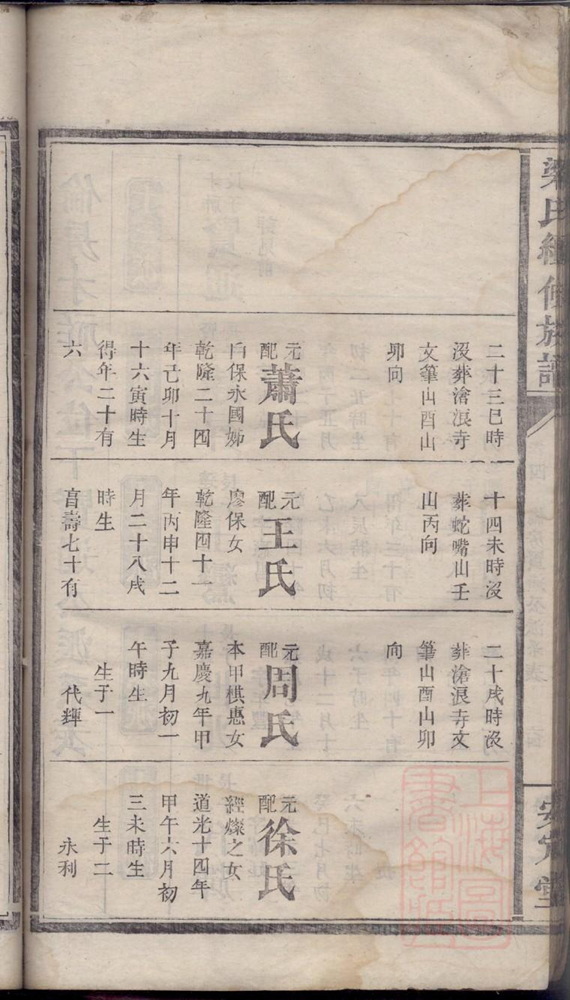 梁氏續修族譜
安定堂
二十三巳時
沒葬滄浪寺
文筆山酉山
卯向
元配蕭氏
白保永國姊
乾隆二十四
年己卯十月
十六寅時生
得年二十有
六
十四未時沒
葬蛇嘴山壬
山丙向
元配王氏
廖保女
乾隆四十一
年丙申十二
月二十八戌
時生
亯壽七十有
二十戌時沒
葬滄浪寺文
筆山酉山卯
向
元配周氏
本甲祺惠女
嘉慶九年甲
子九月初一
午時生
生子一
代輝
元配徐氏
經燦之女
道光十四年
甲午六月初
三未時生
生子二
永利
上海圖書館藏